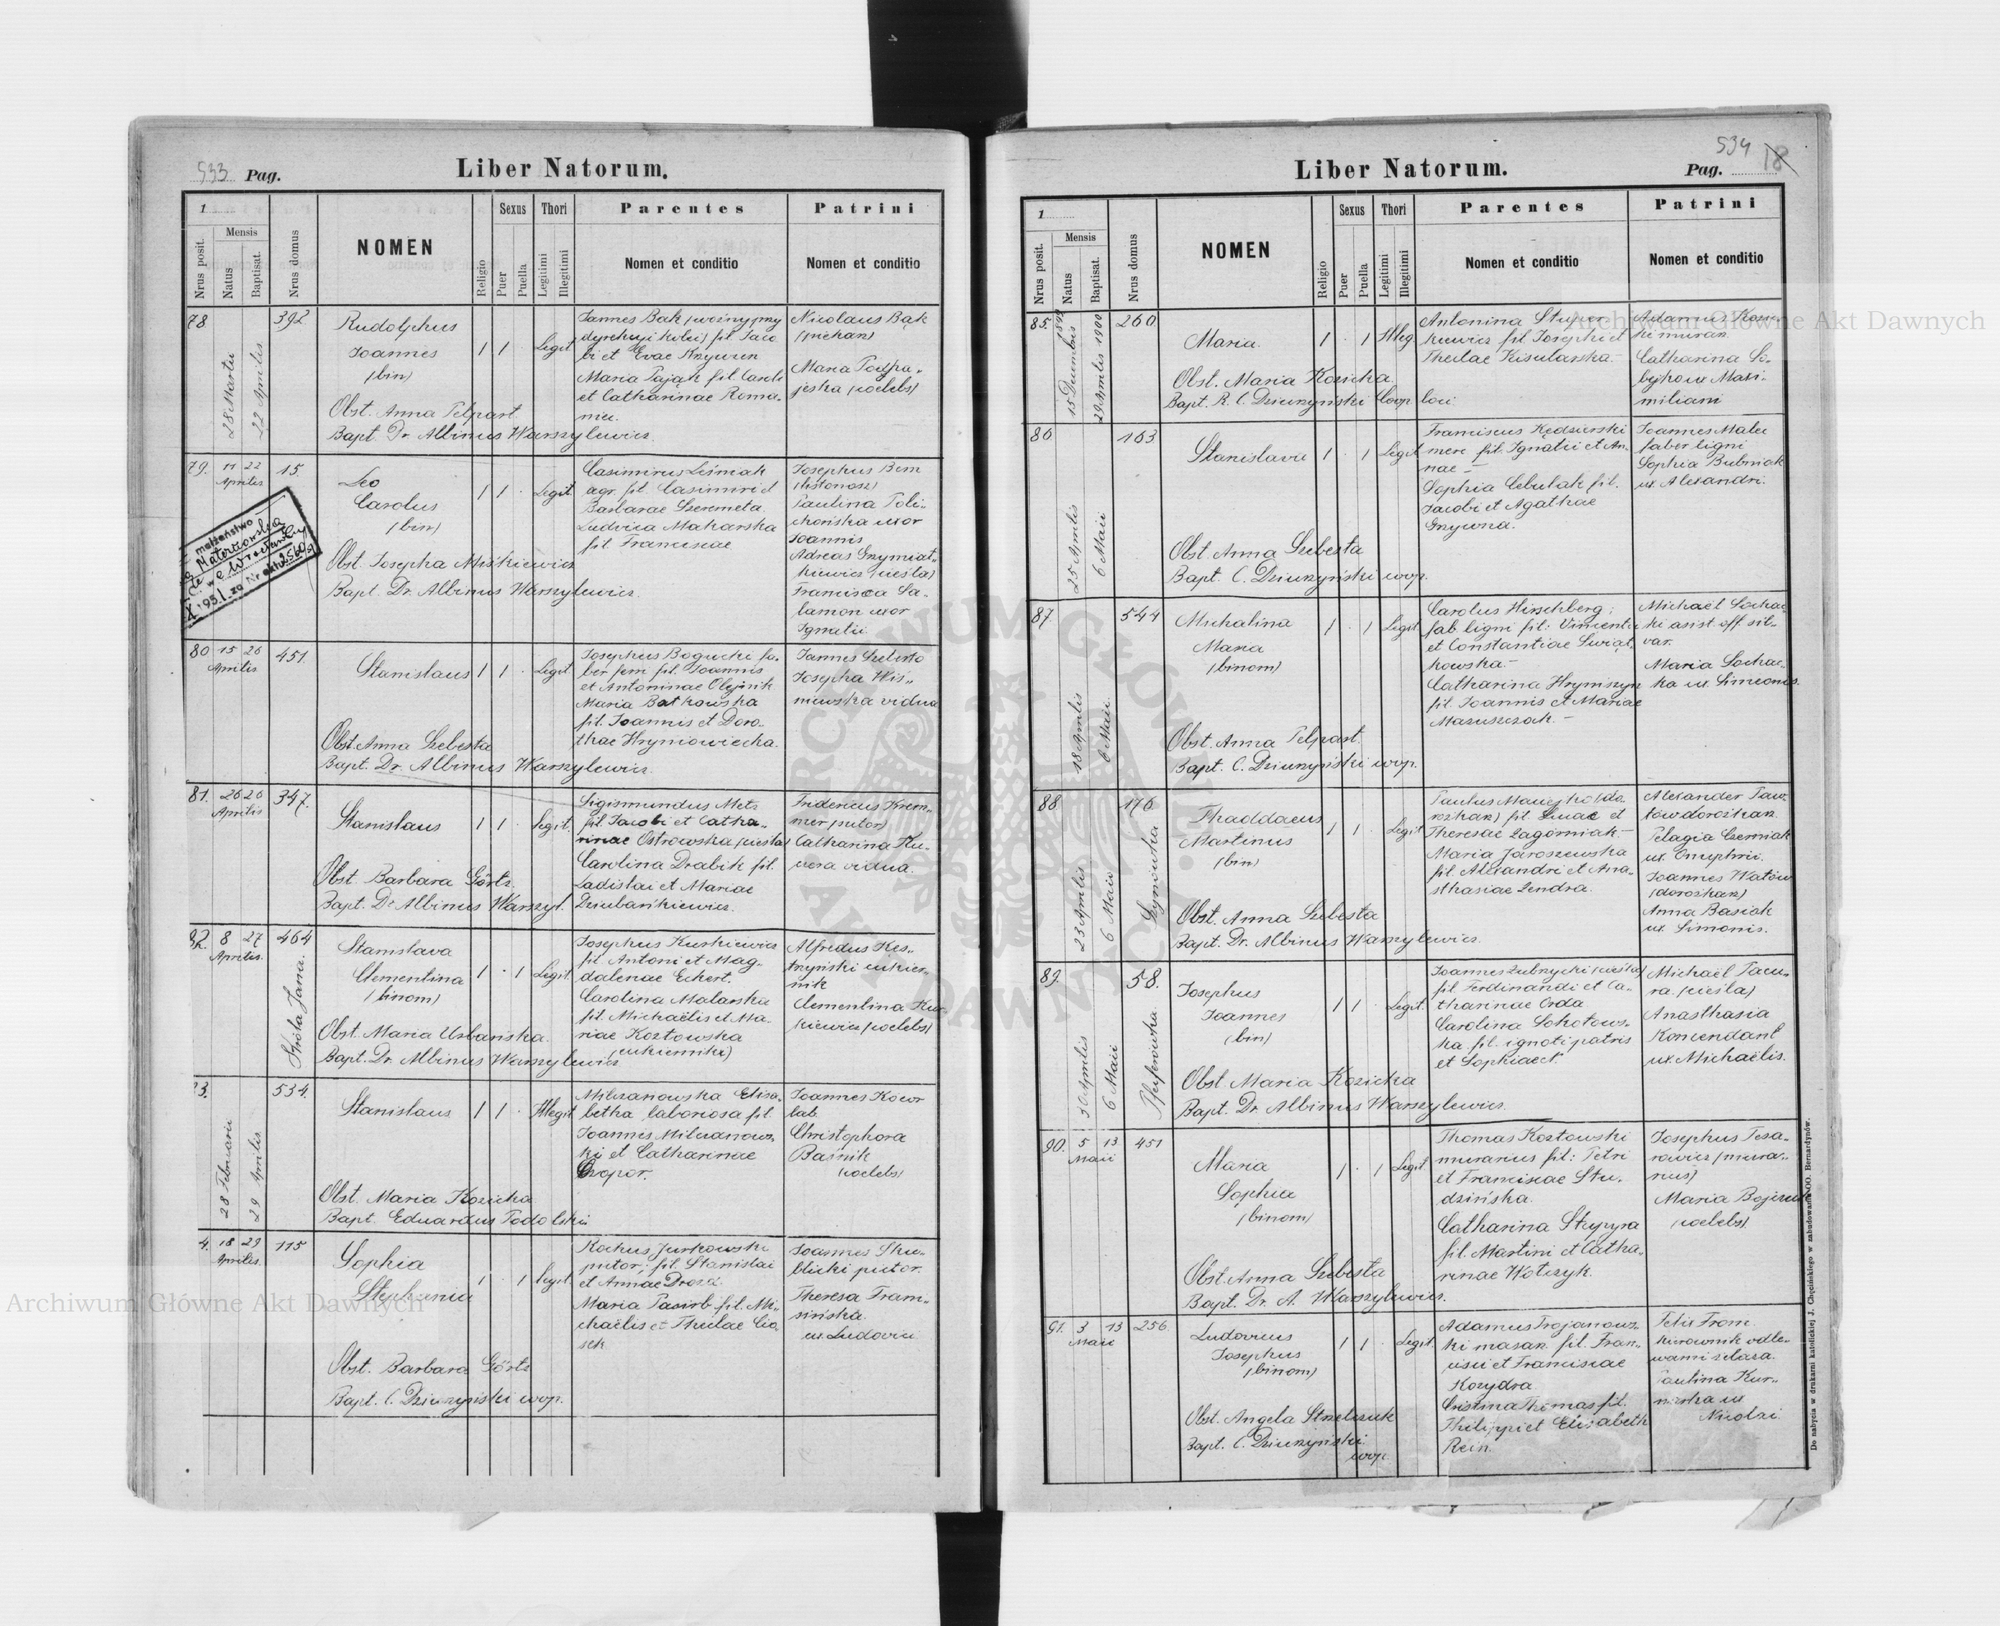 533 Pag.
Liber Natorum.
1
Nrus posit.
Mensis
Natus
Baptisat.
Nrus domus
NOMEN
Religio
Sexus
Puer
Puella
Thori
Legitimi
Illegitimi
Parentes
Nomen et conditio
Patrini
Nomen et conditio
78
28 Martii
22 Aprilis
392
Rudolphus
Joannes
(bin)
Obst. Anna Pelpast
Bapt. Dr. Albinus Warszylewicz.
1 1 · Legit
Joannes Bąk (woźny przy
dyrekcyi kolei) fil. Jaco
bi et Evae
Maria Pająk fil. Caroli
et Catharinae Roma-
Nicolaus Bąk
(piekarz)
Maria Podpa-
(coelebs)
79. 11 22
Aprilis
15.
Leo
Carolus
(bin)
Obst. Josepha Miśkiewicz
Bapt. Dr. Albinus Warszylewicz.
1 1 · Legit.
Casimirus Leśniak
agr. fil. Casimiri et
Barbarae Szeremeta
Ludvica Makarska
fil. Franciscae
Josephus Bem
(listonosz)
Paulina Poli-
chońska uxor
Joannis
(cieśla)
Francisca Sa-
lamon uxor
Ignatii.
małżeństwo
we Wrocławiu
80 15 26
Aprilis
451.
Stanislaus
Obst. Anna Szebesta
Bapt. Dr. Albinus Warszylewicz.
1 1 · Legit.
Josephus Bogucki fa-
ber ferr. fil. Joannis
et Antoninae Olejnik
Maria Batkowska
fil. Joannis et Doro-
thae Hryniowiecka.
Josepha Wiś-
niewska vidua
81. 26 26
Aprilis
347.
Stanislaus
Obst. Barbara Görtz.
Bapt. Dr Albinus Warszyl.
1 1 · Legit.
Sigismundus Metz
fil. Jacobi et Catha-
rinae Ostrowska (cieśla)
Carolina Drabik fil.
Ladislai et Mariae
Dziubańkiewicz.
Fridericus Krem-
mer (sutor)
Catharina Ku-
vidua.
82. 8 27
Aprilis.
464
Stanislava
Clementina
(binom)
Obst. Maria Urbańska.
Bapt. Dr. Albinus Warszylewicz
1 · 1 Legit
Josephus Kurkiewicz
fil. Antoni et Mag-
dalenae Eckert.
Carolina Malarska
fil. Michaëlis et Ma-
riae Kozłowska
Alfredus Kęs-
trzyński cukier-
nik
Clementina Kur-
kiewicz (coelebs)
28 Februarii
29 Aprilis.
534.
Stanislaus
Obst. Maria Kozicka
Bapt. Eduardus Podolski
1 1 · Illegit.
Elisa-
betha, laboriosa fil.
Joannis
ki et Catharinae
Joannes Kocur
lab.
Christophora
Baśnik
(coelebs)
4. 18 29
Aprilis.
115
Sophia
Stephania
Obst. Barbara Görtz
Bapt. C. Dziurzyński coop.
1 · 1 Legit.
Rochus Jurkowski
sutor; fil. Stanislai
et Annae Drozd.
Maria Pasirb fil. Mi-
chaëlis et Theclae Cio-
sek
Joannes Sku-
blicki sutor.
Theresa Fram-
sińska
ux. Ludovici
534 18
Liber Natorum.
Pag.
1
Nrus posit.
Mensis
Natus
Baptisat.
Nrus domus
NOMEN
Religio
Sexus
Puer
Puella
Thori
Legitimi
Illegitimi
Parentes
Nomen et conditio
Patrini
Nomen et conditio
85.
15 Decembris 1899
29 Aprilis 1900
260
Maria.
Obst. Maria Kozicka
Bapt. R. C. Dziurzyński Coop. loci
1 · 1 Illeg.
Antonina
kiewicz fil. Josephi et
Theclae Kisularska.-
Adamus
ki murarz.
Catharina So-
ux Maxi-
miliani
86
25 Aprilis
6 Maii
163
Stanislava
Obst. Anna Szebesta
Bapt. C. Dziurzyński coop.
1 · 1 Legit.
Franciscus Kędzierski
merc. fil. Ignatii et An-
nae -
Sophia Cebulak fil.
Jacobi et Agathae
Grzywna.
Joannes Malec
faber ligni
Sophia Bubniak
ux. Alexandri.
87.
18 Aprilis
6 Maii.
544
Michalina
Maria
(binom)
Obst. Anna Pelpast.
Bapt. C. Dziurzyński coop.
1 · 1 Legit.
Carolus Hirschberg;
fab. ligni fil: Vincentii
et Constantiae Świąt-
kowska.-
Catharina Hryniszyn
fil. Joannis et Mariae
Maruszczak.-
Michaël Sochac-
ki asist. off. sil-
var.
Maria Sochac-
ka ux. Simeonis.
88
23 Aprilis
6 Maii
176
Thaddaeus
Martinus
(bin)
Obst. Anna Szebesta
Bapt. Dr. Albinus Warszylewicz.
1 1 · Legit
fil. Lucae et
Theresae Zagórniak.-
Maria Jaroszewska
fil. Alexandri et Ana-
sthasiae Zendra.
Alexander Paw-
łów dorożkarz.
Pelagia Czerniak
ux. Onuphrii.
Joannes Watów
(dorożkarz)
Anna Basiak
ux. Simonis.
89.
3 Aprilis
6 Maii
58.
Josephus
Joannes
(bin)
Obst. Maria Kozicka
Bapt. Dr Albinus Warszylewicz.
1 1 · Legit.
Joannes Zubrzycki (cieśla)
fil. Ferdinandi et Ca-
tharinae Orda
Carolina Sokołows-
ka fil. ignoti patris
et Sophiae
Michaël Pacu-
ra. (cieśla)
Anasthasia
Komendant
ux. Michaëlis.
90. 5 13
Maii
451
Maria
Sophia
(binom)
Obst. Anna Szebesta
Bapt. Dr. A. Warszylewicz.
1 · 1 Legit.
Thomas Kozłowski
murarius fil: Petri
et Franciscae Stu-
dzińska.
Catharina Stupyra
fil. Martini et Catha-
rinae Wołczyk.
Josephus Tesa-
rowicz (mura-
rius)
Maria
(coelebs)
91. 3 13
Maii
256.
Ludovicus
Josephus
(binom)
Obst. Angela Strzelczuk
Bapt. C. Dziurzyński.
coop.
1 1 · Legit.
Adamus Trojanows-
ki masarz fil. Fran-
cisci et Franciscae
Kozydra
Cristina Thomas fil.
Philippi et Elisabeth
Rein.
Felix From
kierownik odle-
wami żelaza.
Paulina Kur-
ux
Nicolai
Do nabycia w drukarni katolickiej J. Chęcińskiego w zabudowaniu OO. Bernardynów.
Archiwum Główne Akt Dawnych
Archiwum Główne Akt Dawnych
ARCHIWUM GŁÓWNE AKT DAWNYCH